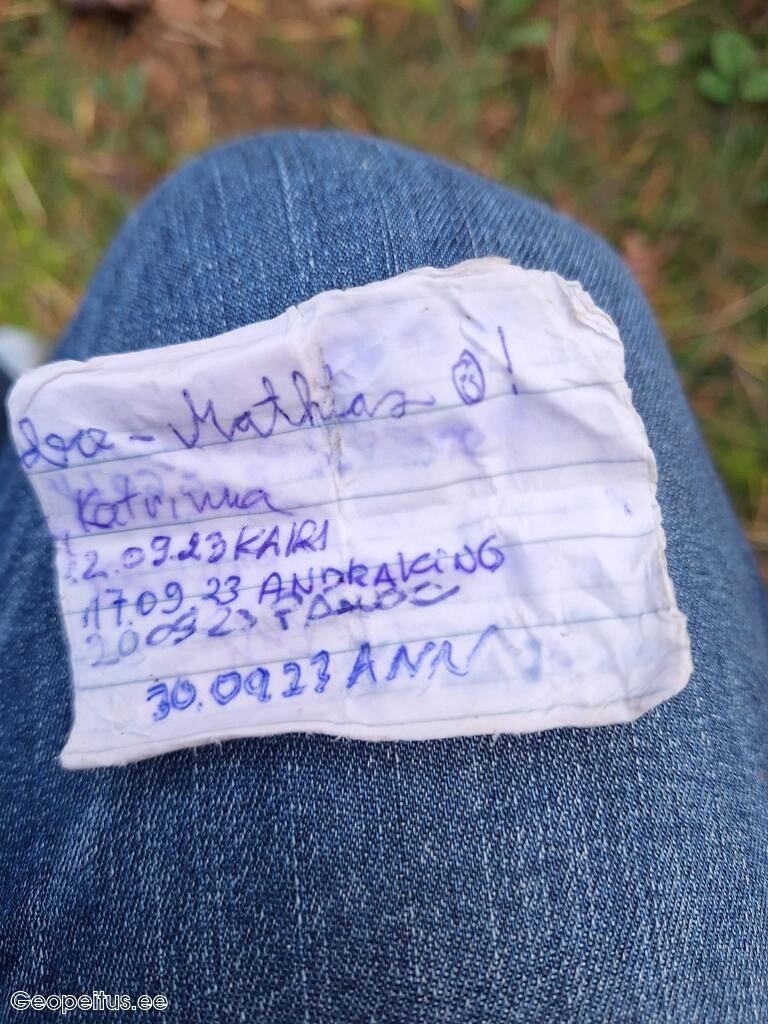 Mathias !
Katriina
12.09.23 KAIRI
17.09 23 ANDRAKING
20 09 23
30.09 23 ANN
Geopeitus.ee